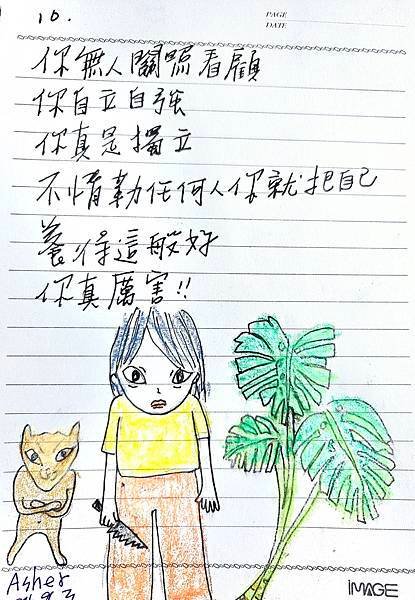 10.
PAGE
DATE
你無人關照看顧
你自立自强
你真是獨立
不情勒任何人你就把自己
養得這般好
你真厲害!!
Asher
IMAGE